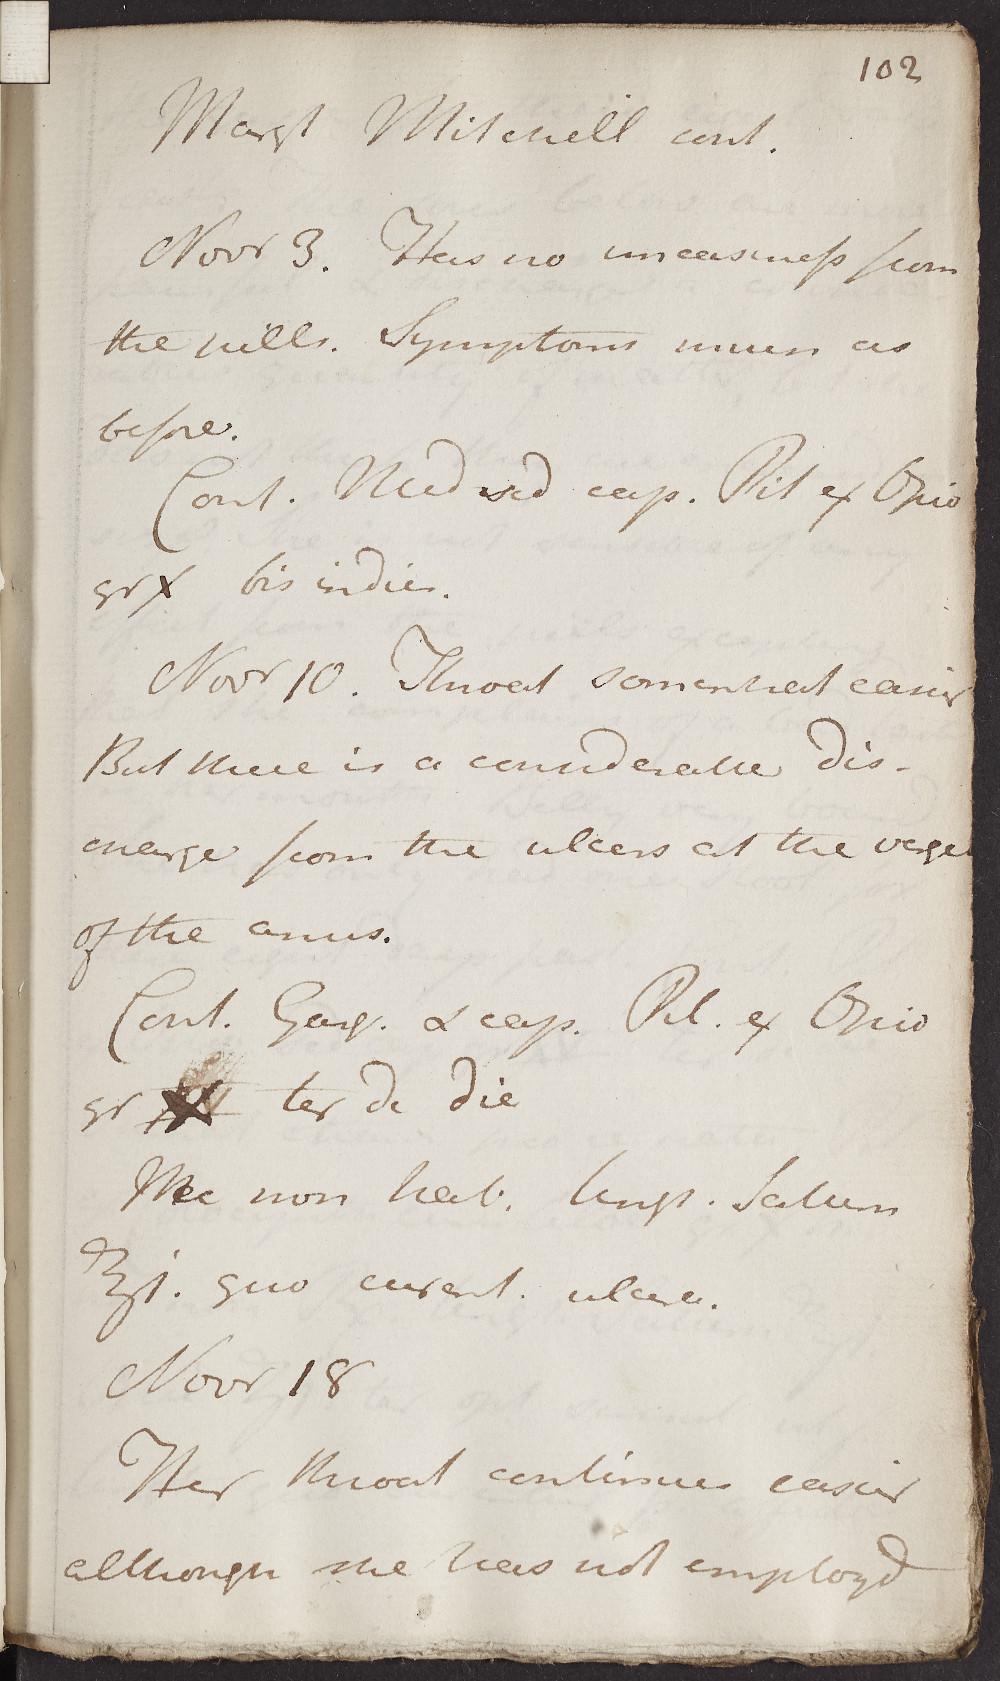 102
Margt Mitchell cont.
Novr 3. Has no uneasiness from
the pills. Symptoms much as
before.
Cont. Med sed cap. Pil ex Opio
gr x bis indies.
Novr 10. Throat somewhat easier
But there is a considerable dis-
charge from the ulcers at the verge
of the anus.
Cont. Garg. & cap. Pil. ex Opio
gr ter de die
Mec non hab. Ungt. Saturn
℥j. quo curent. ulcera.
Novr 18
Her throat continues easier
although she has not employd